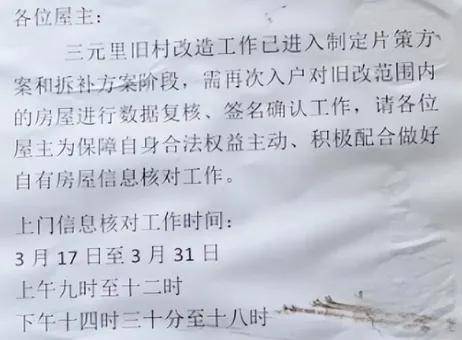 各位屋主：
三元里旧村改造工作已进入制定片策方
案和拆补方案阶段，需再次入户对旧改范围内
的房屋进行数据复核、签名确认工作，请各位
屋主为保障自身合法权益主动、积极配合做好
自有房屋信息核对工作。
上门信息核对工作时间：
3 月 17 日至 3 月 31 日
上午九时至十二时
下午十四时三十分至十八时